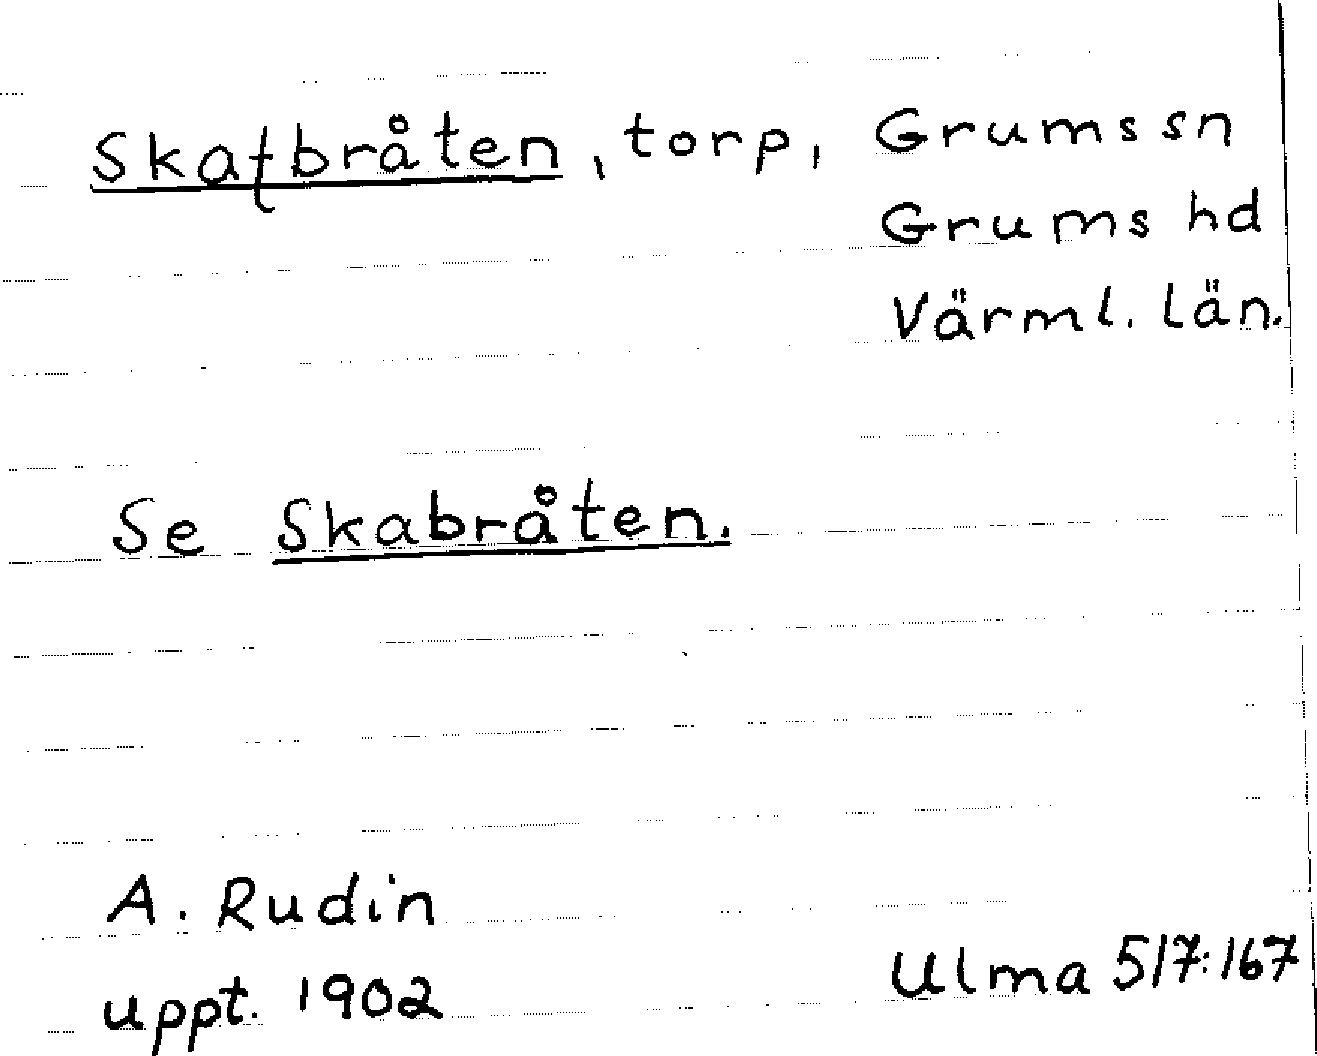 Skafbråten, torp, Grums sn
Grums hd
Värml. län.
Se Skabråten.
A. Rudin
uppt. 1902
Ulma 517:167